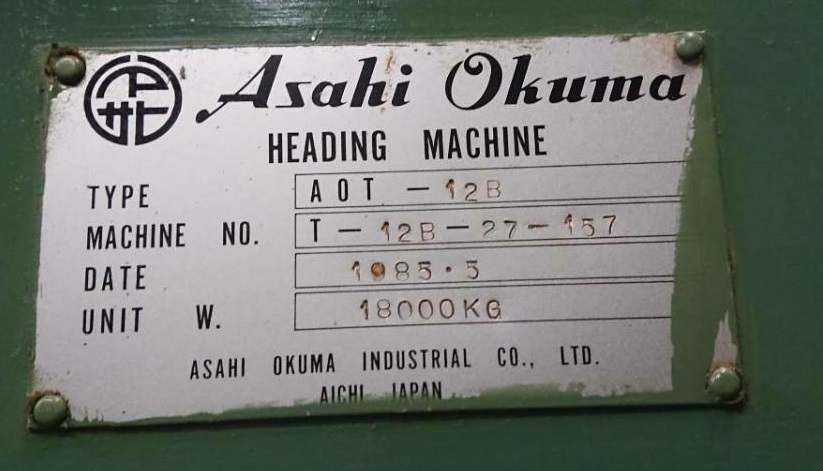 Asahi Okuma
HEADING MACHINE
TYPE AOT - 12B
MACHINE NO. T - 12B - 27 - 157
DATE 1985.5
UNIT W. 18000KG
ASAHI OKUMA INDUSTRIAL CO., LTD.
AICHI JAPAN